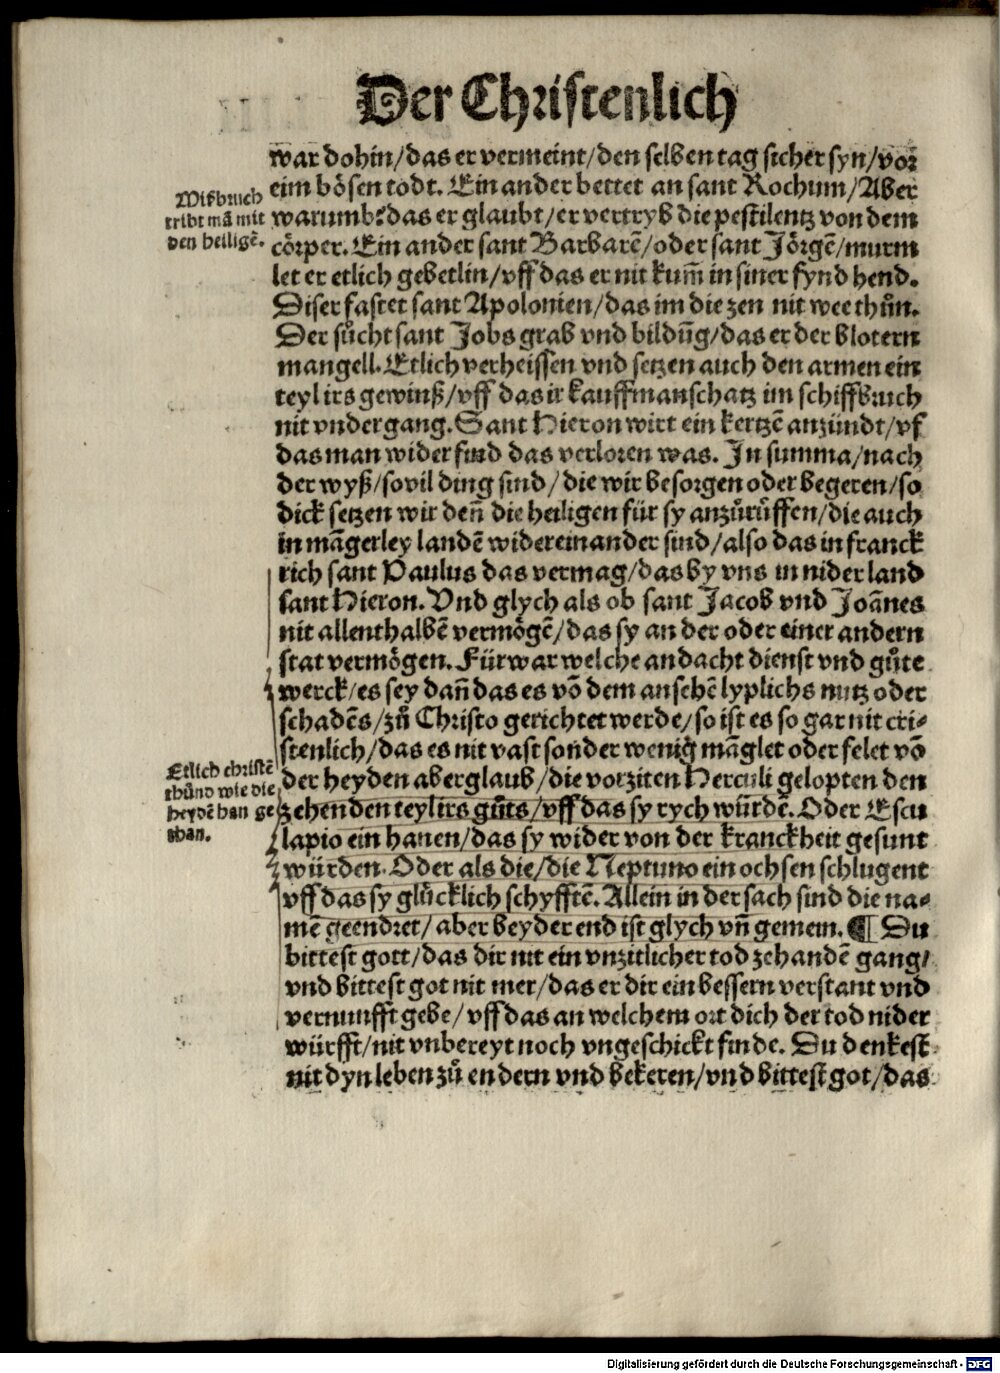 Der Christenlich
war dohin/das er vermeint/den selben tag sicher syn/vor
eim bösen todt. Ein ander bettet an sant Rochum/Aber
warumb?das er glaubt/er vertryb die pestilentz von dem
cörper. Ein ander sant Barbarē/oder sant Jörgē/murm
let er etlich gebetlin/vff das er nit kum̄ in siner fynd hend.
Diser fastet sant Apolonien/das im die zen nit wee thůn.
Der sůcht sant Jobs grab vnd bildūg/das er der blotern
mangell. Etlich verheissen vnd setzen auch den armen ein
teyl irs gewinß/vff das ir kauffmanschatz im schiffbruch
nit vndergang. Sant Hieron wirt ein kertzē anzündt/vf
das man wider find das verloren was. In summa/nach
der wyß/sovil ding sind/die wir besorgen oder begeren/so
dick setzen wir den̄ die heiligen für sy anzůrůffen/die auch
in māgerley landē widereinander sind/also das in franck
rich sant Paulus das vermag/das by vns in niderland
sant Hieron. Vnd glych als ob sant Jacob vnd Joānes
nit allenthalbē vermögē/das sy an der oder einer andern
stat vermögen. Fürwar welche andacht dienst vnd gůte
werck/es sey dan̄ das es vō dem anschē lyplichs nutz oder
schadēs/zů Christo gerichtet werde/so ist es so gar nit cri⸗
stenlich/das es nit vast sonder wenig māglet oder felet vō
der heyden aberglaub/die vorziten Herculi gelopten den
zehenden teyl irs gůts/vff das sy rych würdē. Oder Escu
lapio ein hanen/das sy wider von der kranckheit gesunt
würden. Oder als die/die Neptuno ein ochsen schlugent
vff das sy glücklich schyfftē. Allein in der sach sind die na⸗
mē geendret/aber beyder end ist glych vn̄ gemein. ¶ Du
bittest gott/das dir nit ein vnzitlicher tod zehandē gang/
vnd bittest got nit mer/das er dir ein bessern verstant vnd
vernunfft gebe/vff das an welchem ort dich der tod nider
würfft/nit vnbereyt noch vngeschickt finde. Du denkest
nit dyn leben zů endern vnd bekeren/vnd bittest got/das
Mißbruch
tribt mā mit
den heiligē.
Etlich christē
thůnd wie die
heydē han ge
than.
Digitalisierung gefördert durch die Deutsche Forschungsgemeinschaft - DFG